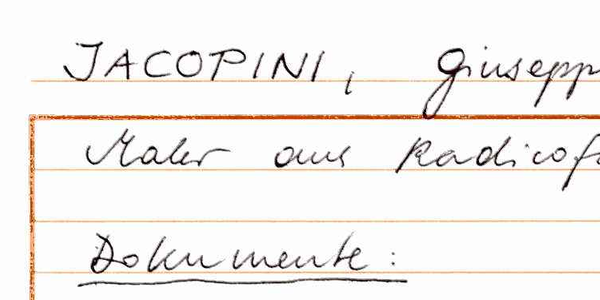 JACOPINI, Giusepp
Maler aus Radicof
Dokumente: